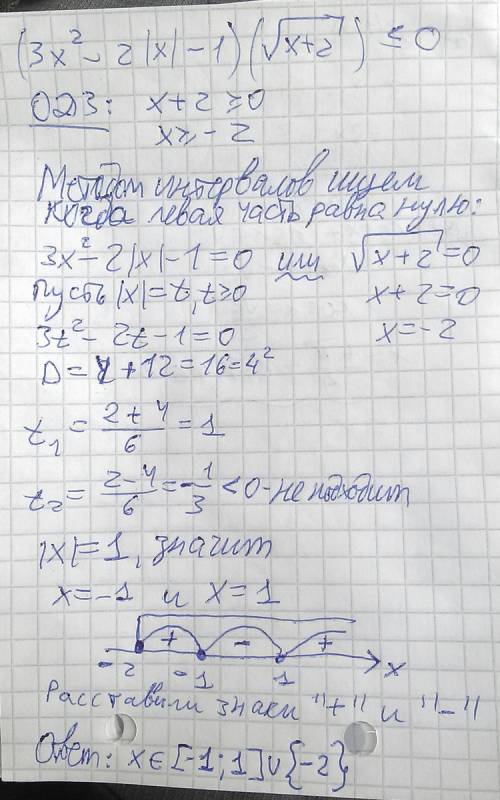 (3x² - 2|x| - 1)(√x+2) ≤ 0
ОДЗ: x+2 ≥ 0
x ≥ -2
Методом интервалов ищем
когда левая часть равна нулю:
3x² - 2|x| - 1 = 0 или √x+2 = 0
пусть |x| = t, t ≥ 0 x+2=0
3t² - 2t - 1 = 0 x = -2
D = 4 + 12 = 16 = 4²
t₁ = (2+4)/6 = 1
t₂ = (2-4)/6 = -1/3 < 0 - не подходит
|x| = 1, значит
x = -1 и x = 1
+ - +
-2 -1 1 x
Расставили знаки "+" и "-"
Ответ: x ∈ [-1; 1] ∪ {-2}